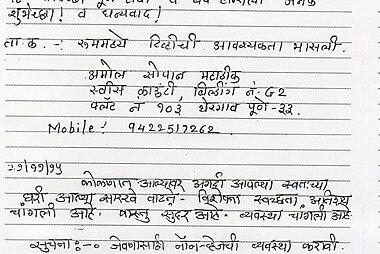 शुभेच्छा! व धन्यवाद!
ता.क. -: रूममध्ये टिव्हीची आवश्यकता भासली.
अमोल सोपान
स्वीस काऊंटी, बिल्डींग नं. G2
फ्लॅट नं १०३ थेरगाव पूणे -३३.
Mobile: 9422517262.
२९/११/१५
कोकणात आल्यावर अगदी आपल्या स्वतःच्या
घरी आल्या सारखे वाटते - विशेषतः स्वच्छता अतिशय
चांगली आहे. वास्तु सुंदर आहे - व्यवस्था चांगली आहे
सुचना :- ० जेवणासाठी नॉन-व्हेजची व्यवस्था करावी.